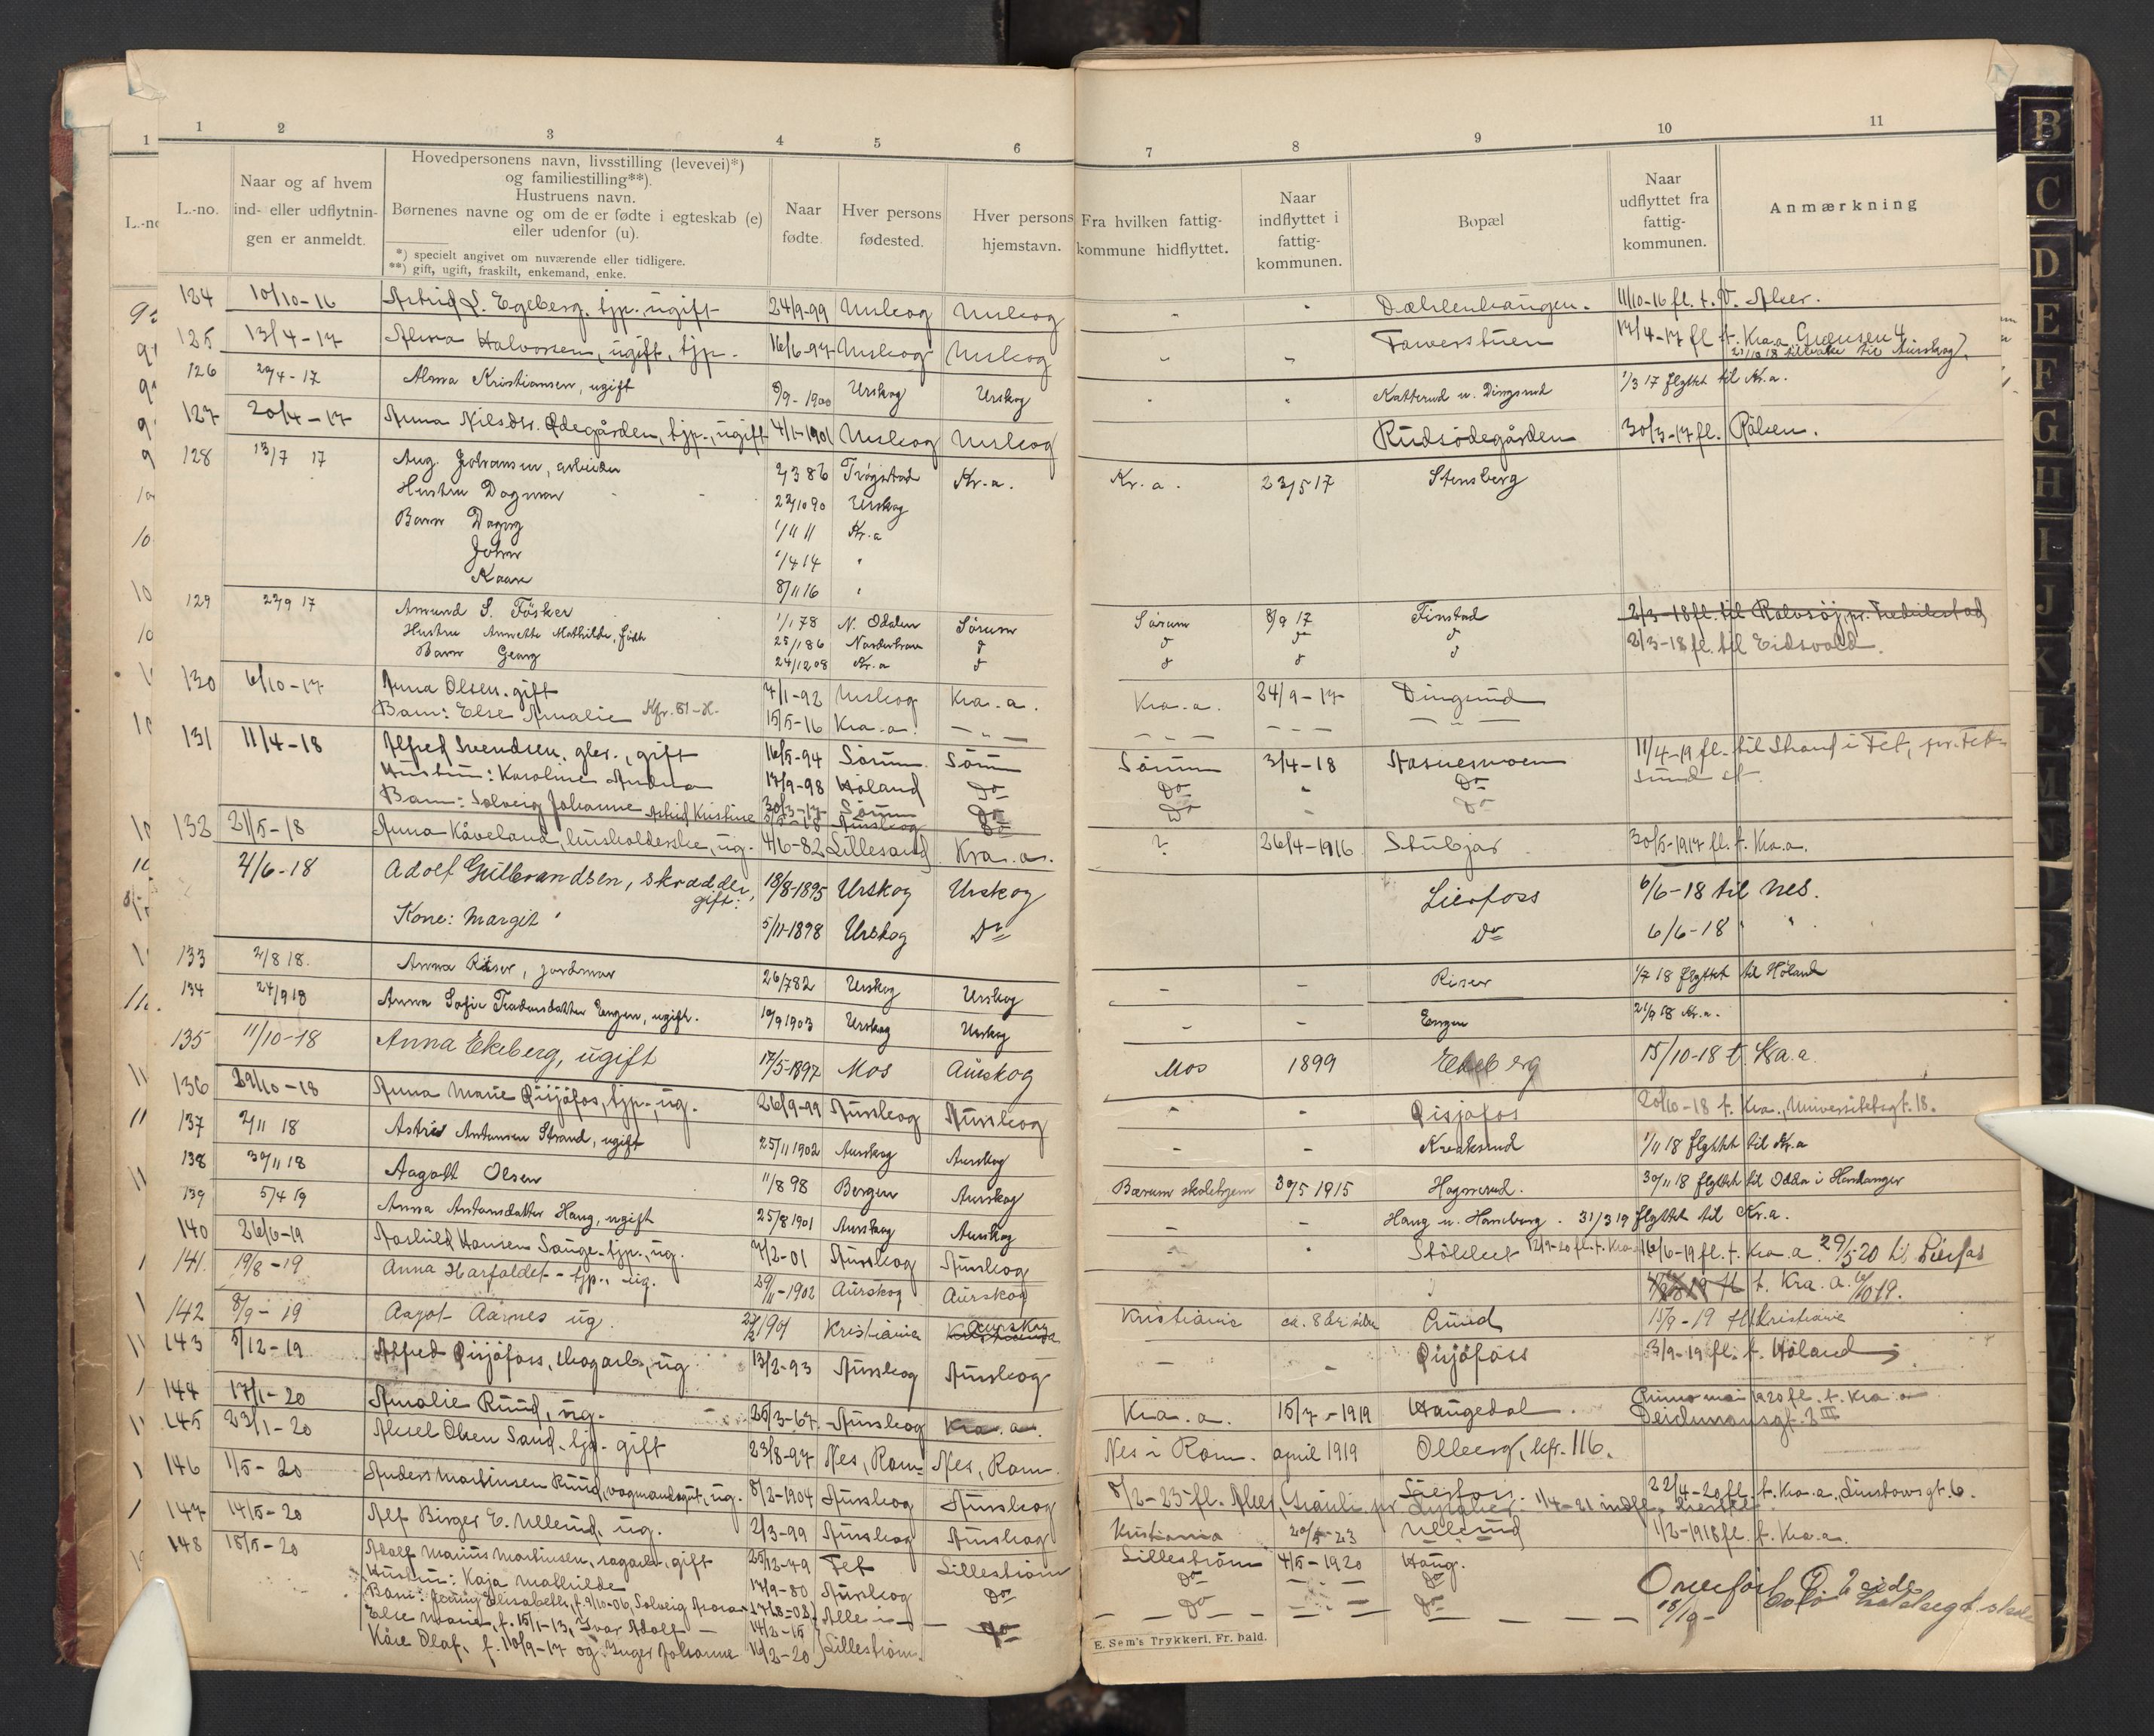 1 2 3 4 5 6 7 8 9 10 11
L.-no.
Naar og af hvem ind- eller udflytnin- gen er anmeldt.
Hovedpersonens navn, livsstilling (levevei)*)
og familiestilling**).
Hustruens navn.
Børnenes navne og om de er fødte i egteskab (e)
eller udenfor (u).
*) specielt angivet om nuværende eller tidligere.
**) gift, ugift, fraskilt, enkemand, enke.
Naar fødte.
Hver persons fødested.
Hver persons hjemstavn.
Fra hvilken fattig- kommune hidflyttet.
Naar indflyttet i fattig- kommunen.
Bopæl
Naar udflyttet fra fattig- kommunen.
Anmærkning
124 10/10-16 Astrid L. Egeberg, tjp. ugift 24/9-99 Urskog Urskog " " 11/10-16 fl. t. V. Aker.
125 13/4-17 Alma Halvorsen, ugift, tjp. 16/6-97 Urskog Urskog " " Tawerstuen 17/4-17 fl. t. Kra.a. Grænsen 4
til Aurskog
126 20/4-17 Alma Kristiansen, ugift 8/9-1900 Urskog Urskog " " Katterud u. Dingsrud 1/3 17 flyttet til Kr.a.
127 20/4-17 Anna Nilsdtr. Ødegården, tjp., ugift 4/1-1901 Urskog Urskog Rudsødegården 30/3-17 fl. Rølken.
128 13/7 17 Aug. Johansen, arbeider 2/3 86 Trøgstad Kr.a. Kr.a. 23/5 17 Stensberg
Hustru Dagmar 22/10 90 Urskog
Barn Dagny 1/11 11 Kr.a
John 1/4 14 "
Kaare 8/11 16 "
129 22/9 17 Amund S. Fösker 1/1 78 N. Odalen Sörum Sörum 8/9 17 Finstad 2/3-18 fl. til Rolvsøj pr. Fredrikstad
Hustru Annette Mathilde, født 25/1 86 Norderhov d d d d 2/3-18 fl. til Eidsvold.
Barn Georg 24/12 08 Kr.a d d d d
130 6/10-17 Anna Olsen. gift 7/1-92 Urskog Kra.a. Kra.a. 24/9-17 Dingsrud
Barn: Else Amalie Kfr. 51-H. 15/5-16 Kra.a. - " -
131 11/4-18 Alfred Svendsen, gift 16/5-94 Sörum Sörum Sörum 3/4-18 Aasnesmoen 11/4-19 fl. til Strand i Fet, pr. Fet-
Hustru: Karoline Andrea 17/9-98 Höland Do Do " Do sund st.
Barn: Solveig Johanne 30/3-17 Sörum Do Do " Do
Astrid Kristine Aurskog Do
132 21/5-18 Anna Kåveland, husholderske, ug. 4/6-82 Lillesand Kra.a. ? 26/4-1916 Stubjar 30/5-1917 fl. t. Kra.a.
4/6-18 Adolf Gulbrandsen, skrædder, gift: 18/8-1895 Urskog Urskog Lierfoss 6/6-18 til Nes.
Kone: Margit 5/11-1898 Urskog Do Do 6/6-18 " "
133 2/8 18. Anna Riser, jordmor 26/7 82 Urskog Urskog - - Riser 1/7 18 flyttet til Höland
134 24/9 18 Anna Sofie Teodorsdatter Engen, ugift. 10/9 1903 Urskog Urskog - - Engen 21/9 18 Kr.a.
135 11/10-18 Anna Ekeberg, ugift 17/5-1897 Mos Aurskog Mos 1899 Ekeberg 15/10-18 t. Kra.a.
136 29/10-18 Anna Marie Qisjøfos, tjp., ug. 26/9-99 Aurskog Aurskog - - Qisjøfos 20/10-18 t. Kra., Universitetsgt. 18.
137 2/11 18 Astrid Antonsen Strand, ugift 25/11 1902 Aurskog Aurskog - - Kvaksrud 1/11 18 flyttet til Kr.a
138 30/11 18 Aagott Olsen 11/8 98 Bergen Aurskog Bærum skolehjem 30/5 1915 Hogsrud. 30/11 18 flyttet til Odda i Hardanger
139 5/4 19 Anna Antonsdatter Haug, ugift 25/8 1901 Aurskog Aurskog - - Haug u. Haneborg. 31/3 19 flyttet til Kr.a.
140 26/6-19 Aashild Hansen Sauge tjp., ug. 7/2-01 Aurskog Aurskog - " 12/9-20 fl. t. Kra. 16/6-19 fl. t. Kra.a. 29/5 20 til Lierfos
141. 19/8-19 Anna Harfaldet - tjp., ug. 29/11-1902 Aurskog Aurskog t. Kra.a. 6/10 19.
142 8/9-19 Aagot Aarnes ug. Kristiania Aurskog Kristiania ca. 8 år siden Ruud 15/9-19 fl. Kristiania
143 5/12-19 Alfred Qisjøfoss, skogarb., ug. 13/2-93 Aurskog Aurskog - - Qisjøfoss 3/9-19 fl. t. Höland
144 17/1-20 Amalie Ruud, ug. 25/3-67 Aurskog Kra.a. Kra.a. 15/7-1919 Haugedal mai 1920 fl. t. Kra.a
Deichmansgt. 3 III
145 23/1-20 Aksel Olsen Sand, gift 23/8-97 Nes, Rom. Nes, Rom. Nes i Rom. april 1919 Olberg, kfr. 116.
146 1/5-20 Anders Martinsen Ruud, vognmandsgut, ug. 8/2-1904 Aurskog Aurskog Lierfoss. 22/4-20 fl. t. Kra.a., Linstowsgt. 6.
8/2-23 fl. Aker, 1/4-21 indfl.
147 14/5-20 Alf Birger E. Ullerud, ug. 2/3-99 Aurskog Aurskog Kristiania Ullerud 1/2-1918 fl. t. Kra.a.
148 18/5-20 Adolf Marius Martinsen, sagarb., gift 25/12-79 Fet Lilleström Lilleström 4/5-1920 Haug.
Hustru: Kaja Mathilde 17/9-80 Aurskog Do Do Do
Barn: Jenny Elisabeth, f. 9/10-06, Solveig 17/8-08 Alle i Do Do
Else Marie, f. 15/1-13, Ivar Adolf 14/2-15 Do
Kåre Olaf, f. 10/9-17 og Inger Johanne 16/2-20 Lilleström.
E. Sem's Trykkeri, Fr.hald.
B
C
D
E
F
G
H
I
J
K
L
M
N